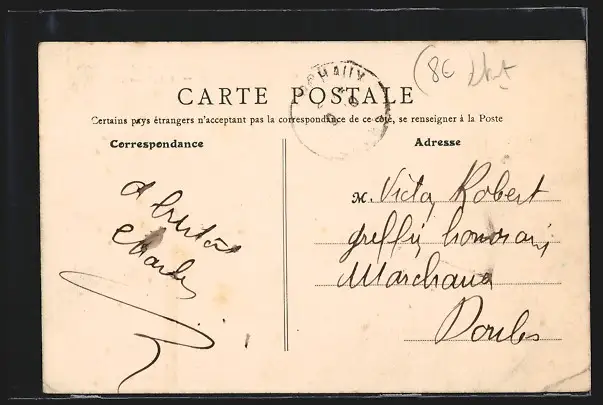 (8€
CARTE POSTALE
Certains pays étrangers n'acceptant pas la correspondance de ce côté, se renseigner à la Poste
Correspondance
Adresse
à bientôt
Charles
M. Victor Robert
greffier honoraire
Marchaux
Doubs